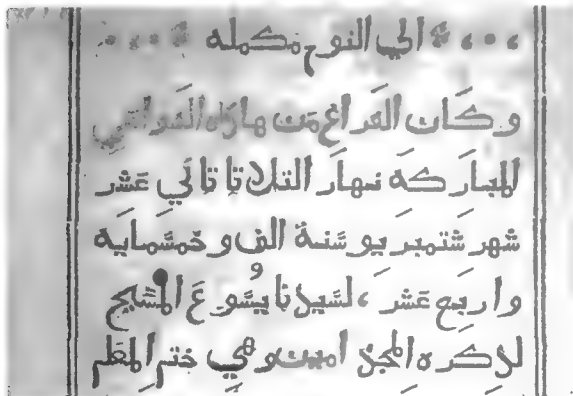 الي النوح مكمله
وكان الفراغ من هاده الفراقي
المباركه نهار التلاتا تاني عشر
شهر شتمبريو سنة الف وخمسمايه
واربع عشر، لسيدنا يسوع المسيح
لدكره المجد امين وهي ختم المظم